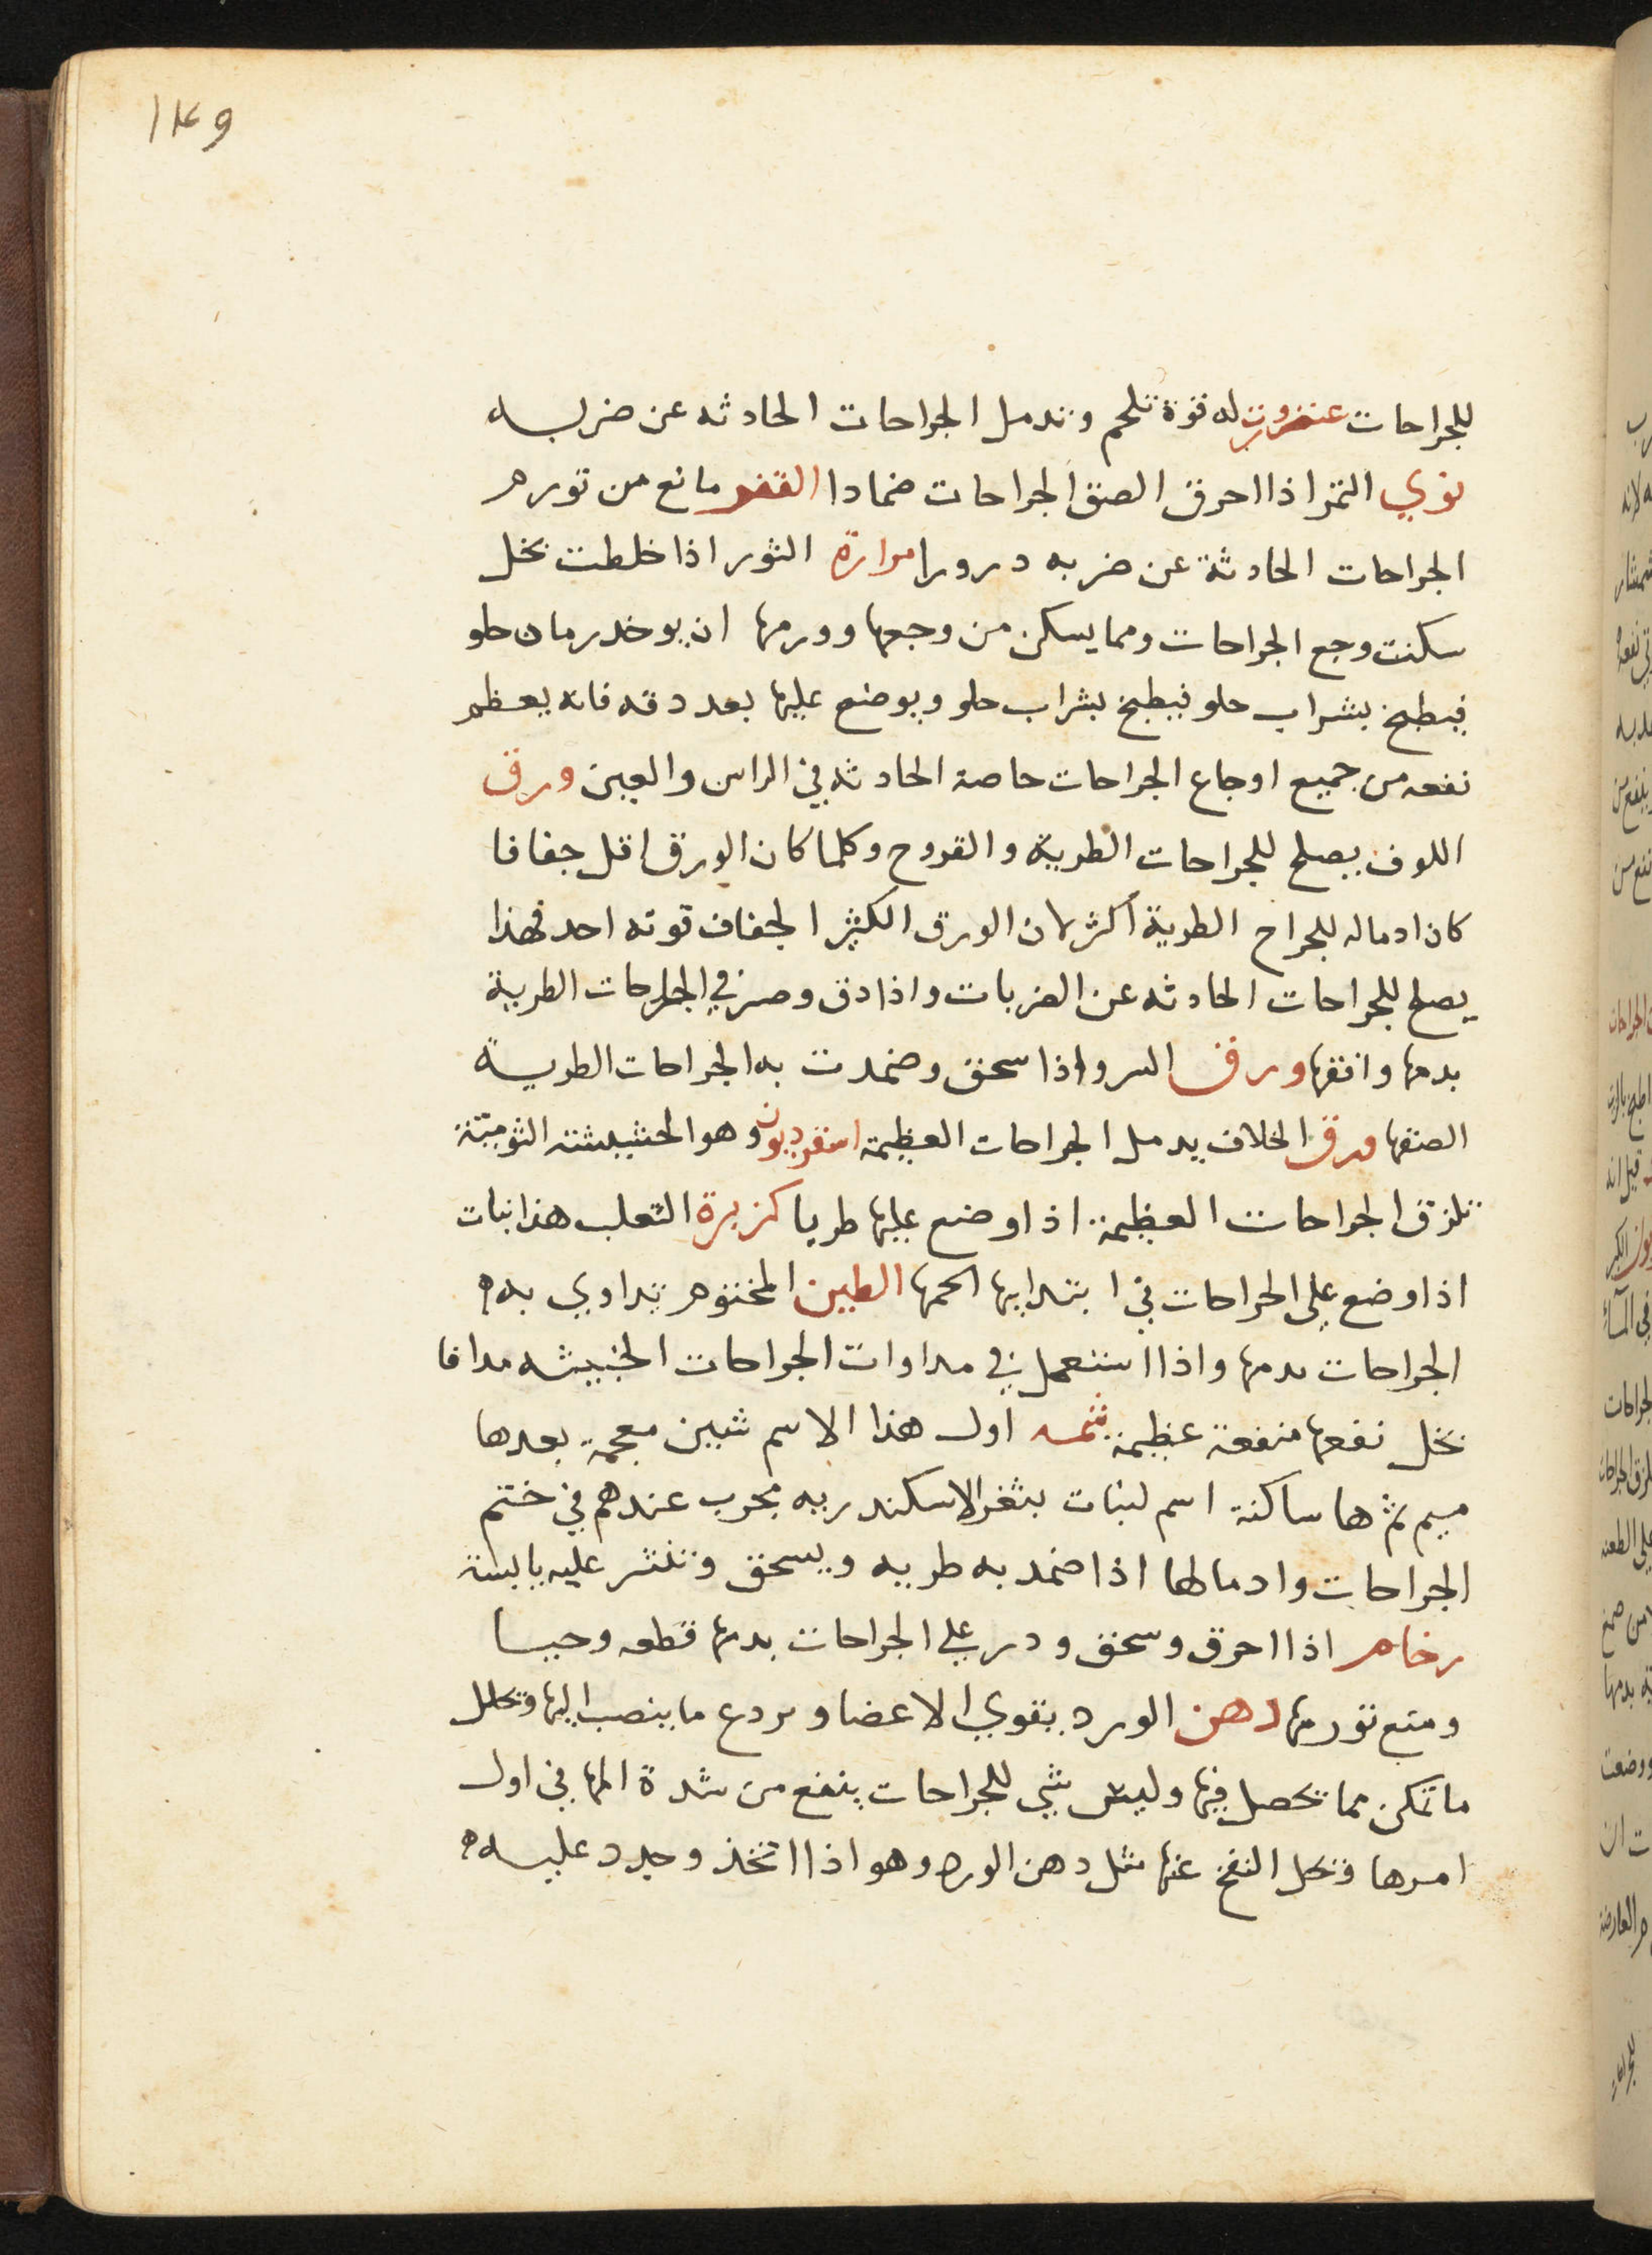 ١٤٩
للجراحات عنزروت له قوة تلحم وتدمل الجراحات الحادثه عن ضربه
نوي التمر اذا احرق الصق الجراحات ضمادا القفر مانع من تورم
الجراحات الحادثة عن ضربه درورا مرارة الثور اذا خلطت بخل
سكنت وجع الجراحات ومما يسكن من وجعها وورمها ان يوخد رمان حلو
فيطبخ بشراب حلو فيطبخ بشراب حلو ويوضع عليها بعد دقه فانه يعظم
نفعه من جميع اوجاع الجراحات خاصة الحادثه في الراس والعين ورق
اللوف يصلح للجراحات الطرية والقروح وكلما كان الورق اقل جفافا
كان ادماله للجراح الطرية أكثر لان الورق الكثير الجفاف قوته احد فهذا
يصلح للجراحات الحادثه عن الضربات واذا دق وصر في الجراحات الطرية
بدمها وانقها ورق السرو اذا سحق وضمدت به الجراحات الطرية
الصقها ورق الخلاف يدمل الجراحات العظيمة اسقرديون وهو الحشيشة الثومية
تلزق الجراحات العظيمة اذا وضع عليها طريا كزبرة الثعلب هذا نبات
اذا وضع على الجراحات في ابتدايها الحمها الطين المختوم تداوي به
الجراحات بدمها واذا استعمل في مداوات الجراحات الخبيثه مدافا
بخل نفعها منفعة عظيمة شمه اول هذا الاسم شين معجمة بعدها
ميم ثم ها ساكنة اسم لنبات بثغر الاسكندريه مجرب عندهم في ختم
الجراحات وادمالها اذا ضمد به طريه ويسحق وتنثر عليه يابسة
رخام اذا احرق وسحق ودر على الجراحات بدمها قطعه وحيا
ومنع تورمها دهن الورد يقوي الاعضا ويردع ما ينصب اليها وتحلل
ما تمكن مما تحصل فيها وليس شي للجراحات ينفع من شدة المها في اول
امرها وتحل النفخ عنها مثل دهن الورد وهو اذا اتخذ وجدد عليه